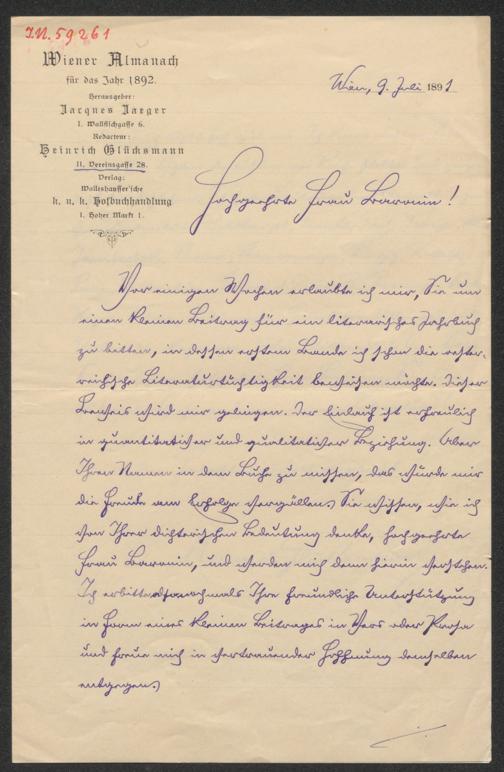 I.N. 59261
Wiener Almanach
für das Jahr 1892.
Herausgeber:
Jacques Jaeger
I. Wallfischgasse 6.
Redacteur:
Heinrich Glücksmann
II. Vereinsgasse 28.
Verlag:
Wallishausser'sche
k. u. k. Hofbuchhandlung
I. Hoher Markt 1.
Wien, 9. Juli 1891
Hochgeehrte Frau Baronin!
Vor einigen Wochen erlaubte ich mir, Sie um
einen kleinen Beitrag für ein literarisches Jahrbuch
zu bitten, in dessen erstem Bande ich schon die öster-
reichische Literaturtüchtigkeit beweisen möchte. Dieser
Beweis wird mir gelingen. Der Einlauf ist erfreulich
in quantitativer und qualitativer Beziehung. Aber
Ihren Namen in dem Buche zu missen, das würde mir
die Freude am Erfolge vergällen. Sie wissen, wie ich
von Ihrer dichterischen Bedeutung denke, hochgeehrte
Frau Baronin, und werden mich denn hierin verstehen.
Ich erbitte also nochmals Ihre freundliche Unterstützung
in Form eines kleinen Beitrages in Vers oder Prosa
und freue mich in vertrauender Hoffnung demselben
entgegen.